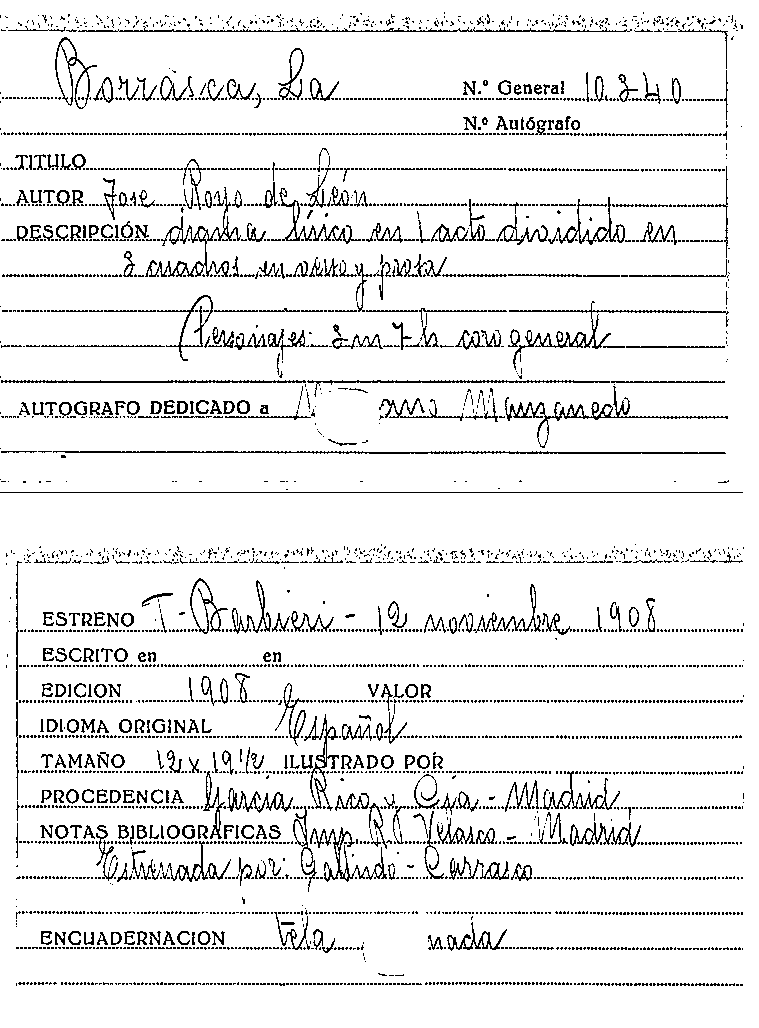 Borrasca, La N.º General 10.340
N.º Autógrafo
TITULO
AUTOR Jose Royo de León
DESCRIPCIÓN drama lírico en 1 acto dividido en
3 cuadros en verso y prosa
Personajes: 3 m 7 h coro general
AUTOGRAFO DEDICADO a Manzanedo
ESTRENO T - Barbieri - 12 noviembre 1908
ESCRITO en en
EDICION 1908 VALOR
IDIOMA ORIGINAL Español
TAMAÑO 12 x 19 1/2 ILUSTRADO POR
PROCEDENCIA García Rico y Cía - Madrid
NOTAS BIBLIOGRAFICAS Imp. R. Velasco - Madrid
Estrenada por: Galindo - Carrasco
ENCUADERNACION tela nada